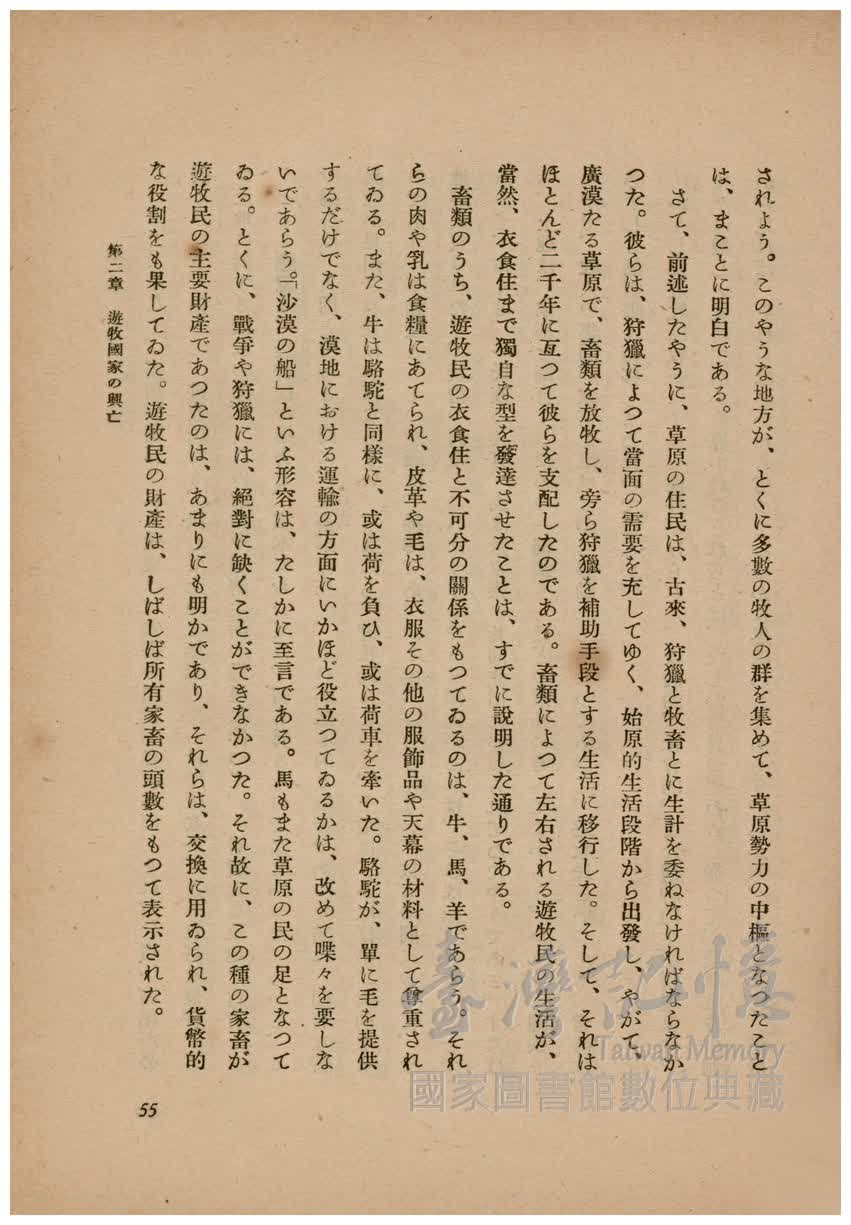 されよう。このやうな地方が、とくに多數の牧人の群を集めて、草原勢力の中樞となつたこと
は、まことに明白である。
さて、前述したやうに、草原の住民は、古來、狩獵と牧畜とに生計を委ねなければならなか
つた。彼らは、狩獵によつて當面の需要を充してゆく、始原的生活段階から出發し、やがて、
廣漠たる草原で、畜類を放牧し、旁ら狩獵を補助手段とする生活に移行した。そして、それは
ほとんど二千年に亙つて彼らを支配したのである。畜類によつて左右される遊牧民の生活が、
當然、衣食住まで獨自な型を發達させたことは、すでに說明した通りである。
畜類のうち、遊牧民の衣食住と不可分の關係をもつてゐるのは、牛、馬、羊であらう。それ
らの肉や乳は食糧にあてられ、皮革や毛は、衣服その他の服飾品や天幕の材料として尊重され
てゐる。また、牛は駱駝と同樣に、或は荷を負ひ、或は荷車を牽いた。駱駝が、單に毛を提供
するだけでなく、漠地における運輸の方面にいかほど役立つてゐるかは、改めて喋々を要しな
いであらう。「沙漠の船」といふ形容は、たしかに至言である。馬もまた草原の民の足となつて
ゐる。とくに、戰爭や狩獵には、絕對に缺くことができなかつた。それ故に、この種の家畜が
遊牧民の主要財產であつたのは、あまりにも明かであり、それらは、交換に用ゐられ、貨幣的
な役割をも果してゐた。遊牧民の財產は、しばしば所有家畜の頭數をもつて表示された。
第二章　遊牧國家の興亡
55
臺灣記憶
Taiwan Memory
國家圖書館數位典藏